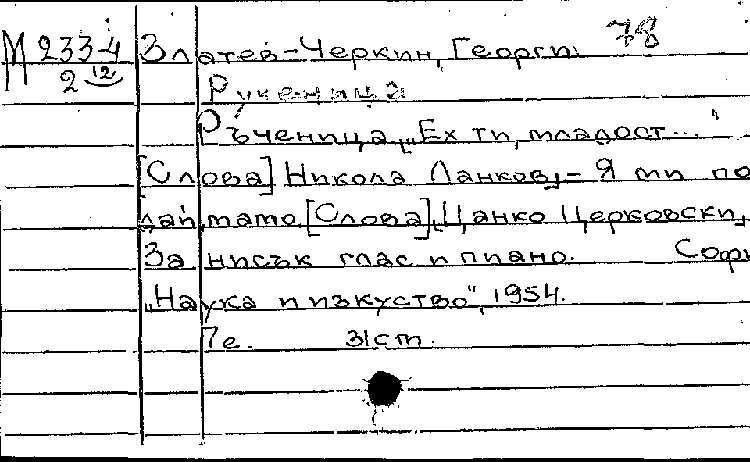 78
М 2334 Златев-Черкин, Георги
2 12 Ръченица
Ръченица „Ех ти, младост..."
[Слова] Никола Ланков, - Я ми по
дай, тате. [Слова] Цанко Церковски,
За нисък глас и пиано. Софи
„Наука и изкуство", 1954.
7 с. 31 ст.